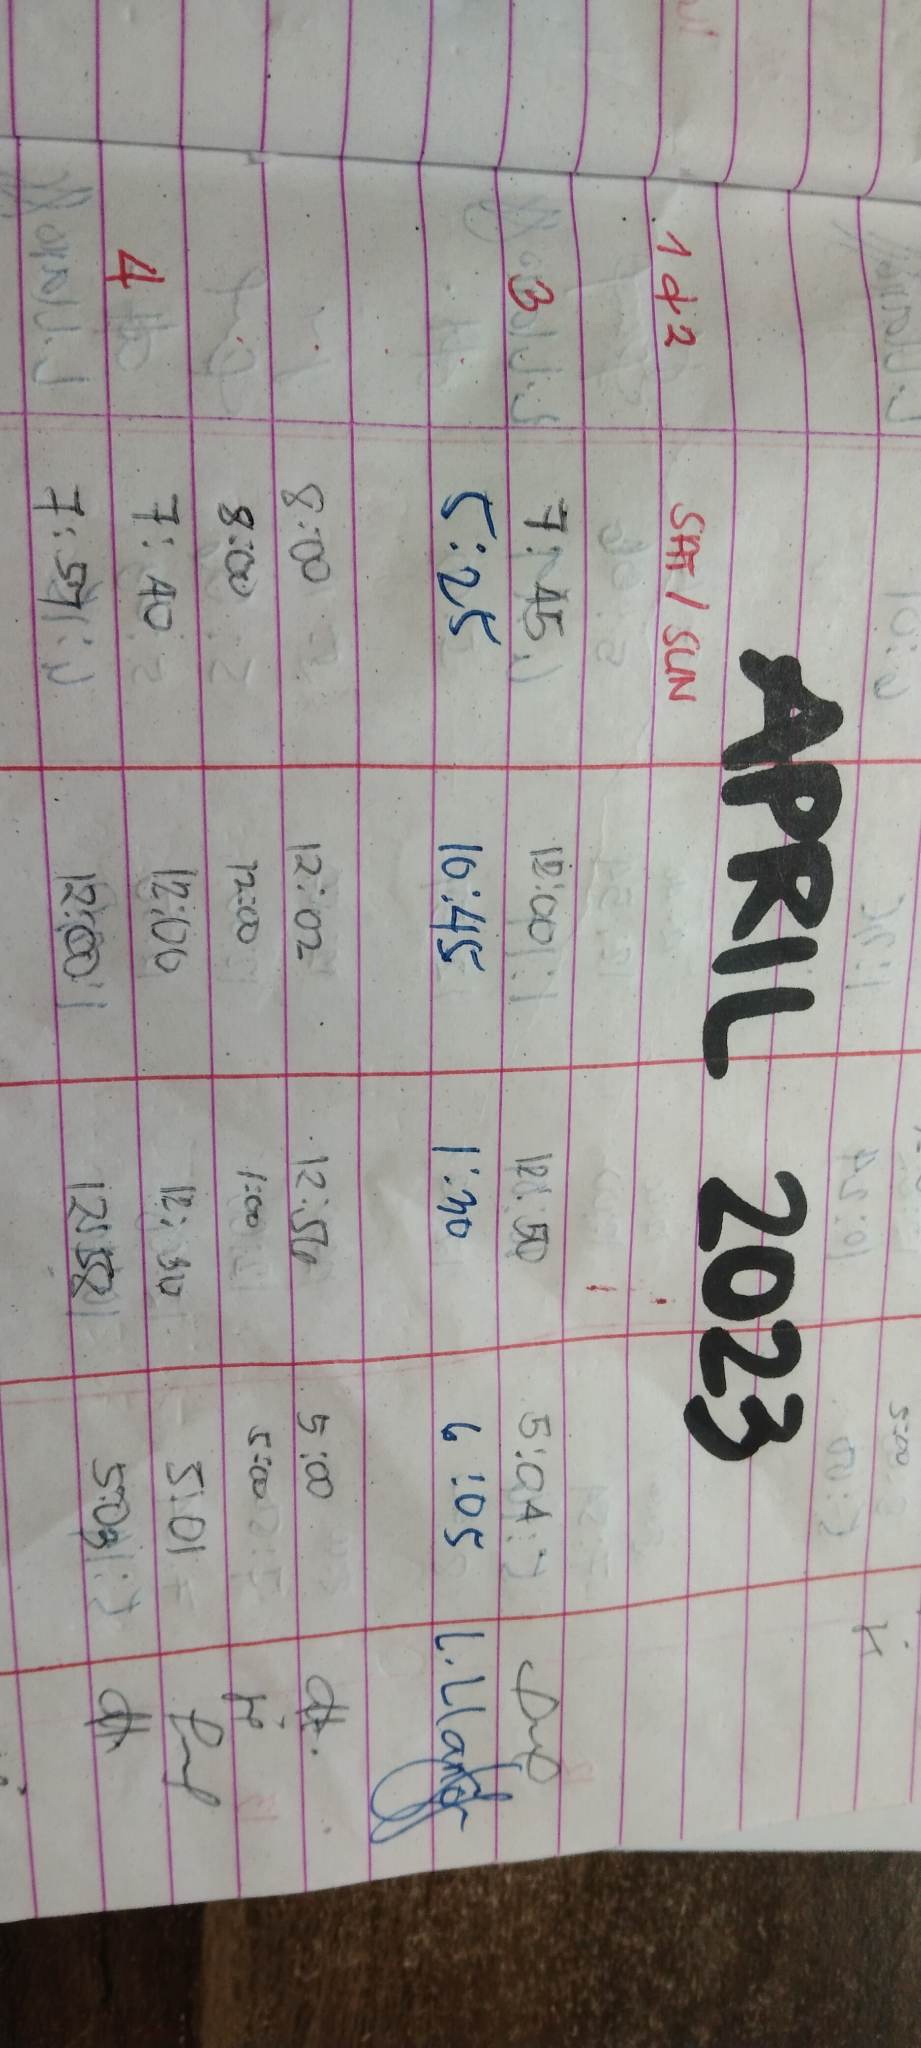 APRIL 2023
1 & 2 SAT / SUN
3 7:45 12:00 12:50 5:04
5:25 10:45 1:30 6:05 L. Llanto
8:00 12:02 12:56 5:00
8:00 12:00 1:00 5:00
4 7:40 12:06 12:30 5:01
7:57 12:00 12:58 5:03